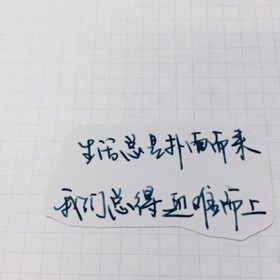 生活总是扑面而来
我们总得迎难而上